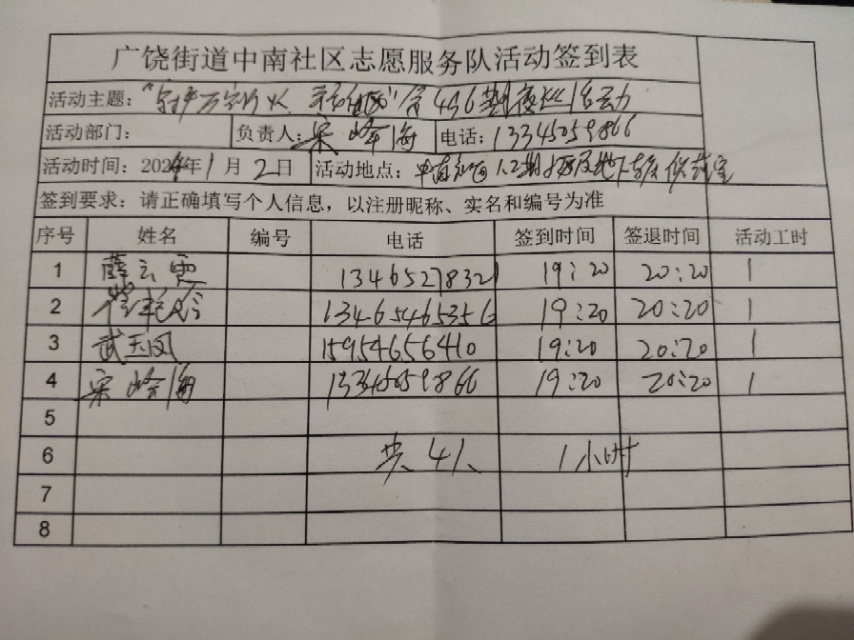 广饶街道中南社区志愿服务队活动签到表
活动主题：“守护万家灯火 第496期夜巡活动
活动部门： 负责人：宋峰海 电话：13345059866
活动时间：2024年1月2日 活动地点：中南 1.2期 及地下
签到要求：请正确填写个人信息，以注册昵称、实名和编号为准
序号 姓名 编号 电话 签到时间 签退时间 活动工时
1 薛云霞 13465278321 19:20 20:20 1
2 13465465356 19:20 20:20 1
3 武玉凤 15954656410 19:20 20:20 1
4 宋峰海 13345059866 19:20 20:20 1
5
6 共4人 1小时
7
8